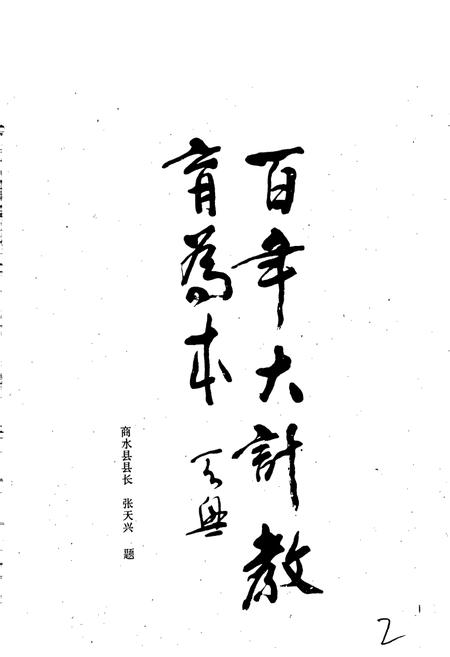 百年大計教
育為本
天興
商水县县长 张天兴 题
2